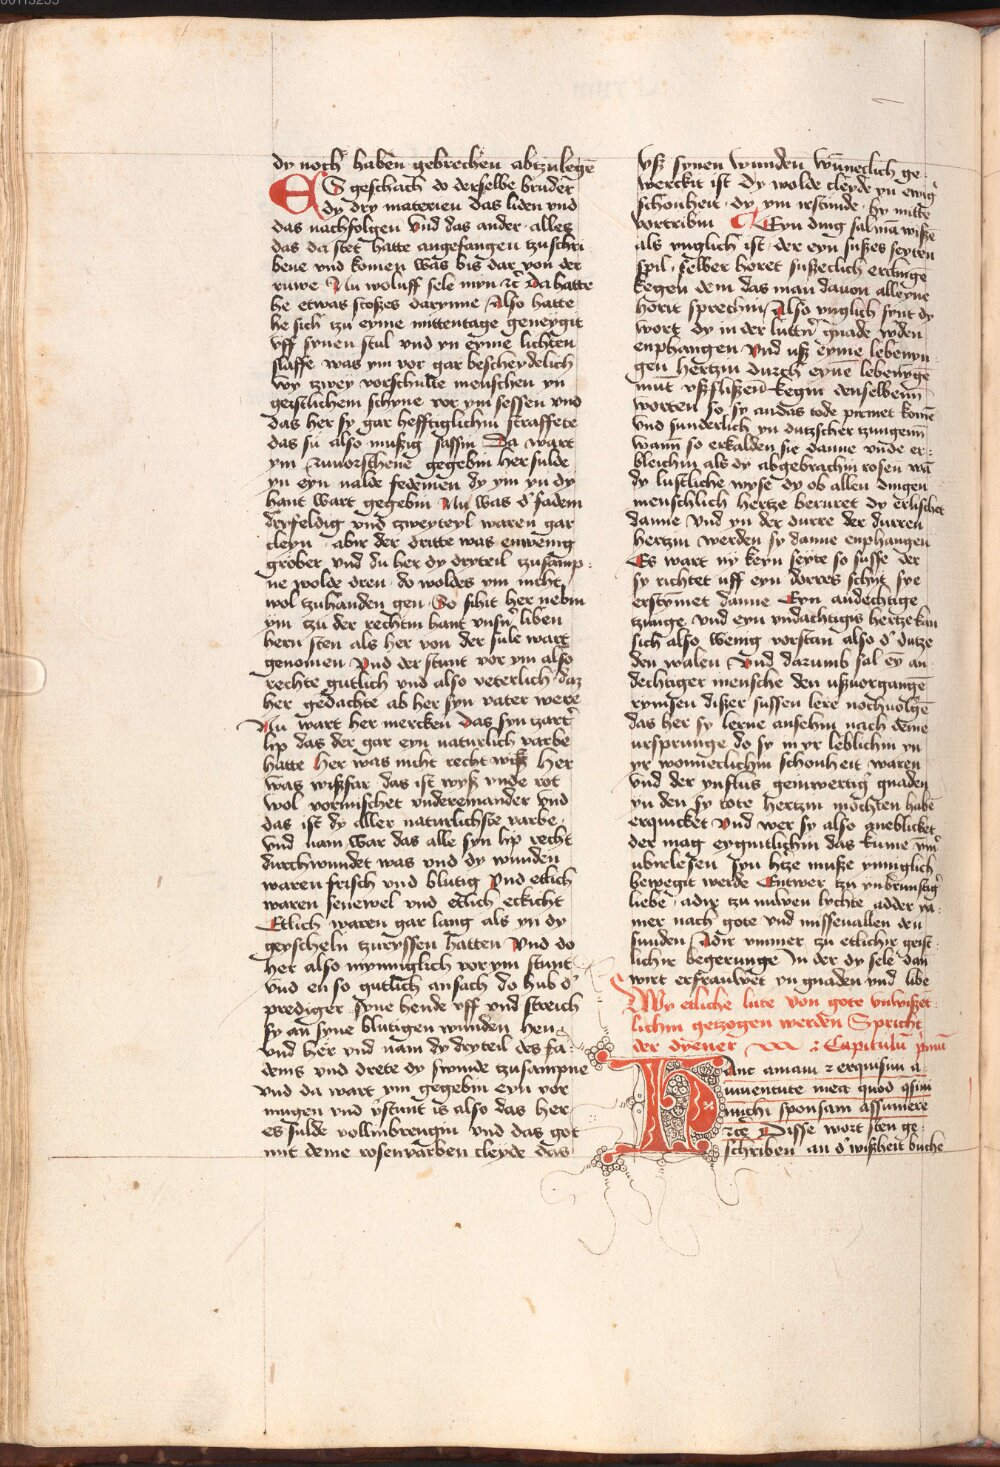 dy noch haben gebrechen abtzulegē
ES geschach do derselbe bruder
dy dry materien das liden vnd
das nachfolgen vnd das ander alles
das da stet hatte angefangen tzuschri
bene vnd komen was bis dar von der
ruwe Nu woluff sele myn ꝛc̄ Da hatte
he etwas stoßes darynne Also hatte
he sich tzu eyme mittentage geneygit
vff synen stul vnd yn eyme lichten
slaffe was ym vor gar bescheydelich
wy tzwey vorschulte menschen yn
geistlichem schyne vor ym sessen vnd
das her sy gar hefftiglichin straffete
das sii also mußig sassin Da wart
ym gegebin her sulde
yn eyn nalde fedemen dy ym yn dy
hant wart gegebin Nu was d' fadem
dryfeldig vnd tzweyteyl waren gar
cleyn abir der dritte was enwenig
grober vnd du her dy dryteil tzusamp
ne wolde dren do woldes ym nicht
wol tzuhanden gen So sihit her nebin
ym tzu der rechtin hant vnsn̄ liben
hern sten als her von der sule wart
genomen Vnd der stunt vor ym also
rechte gutlich vnd also veterlich daz
her gedachte ab her syn vater were
Nu wart her mercken das syn tzart'
lip das der gar eyn naturlich varbe
hatte her was nicht recht wiß Her
was wißfar das ist wyß vnde rot
wol vormischet vndereinander vnd
das ist dy aller naturlichste varbe
vnd nam war das alle syn lip recht
durchwundet was vnd dy wunden
waren frisch vnd blutig Vnd etlich
waren senewel vnd etlich eckicht
Etlich waren gar lang als yn dy
geyscheln tzuryssen hatten Vnd do
her also mynniglich vor ym stunt
vnd en so gutlich ansach do hub d'
prediger syne hende vff vnd streich
sy an syne blutigen wunden hen
vnd her vnd nam dy dryteil des fa
dems vnd drete dy swinde tzusampne
vnd da wart ym gegebin eyn vor
mugen vnd v̄stunt is also das her
es sulde vollinbrengin vnd das got
mit deme rosenvarben cleyde das
vß synen wunden wūneclich ge
werckit ist dy wolde cleyde yn ewig'
schonheit dy ym ir stunde hy mitte
vortribin Eyn ding sal mā wisse
als vnglich ist der eyn sußes seyten
spil selber horet sußeclich erclinge
kegen dem das man dauon alleyne
horit sprechin Also vnglich synt dy
wort dy in der lutt'n gnade w'den
enphangen Vnd uß eyme lebenyn
gen hertzin durch eynē lebenyge
mut vßflißen kegin denselbenn
worten so sy an das tode pirmet komē
vnd sunderlich yn dutzscher tzungenn
wann so erkalden sie danne vnde er
bleichin als dy abgebrachin rosen wā
dy lustliche wyse dy ob allen dingen
menschlich hertze beruret dy erlischet
danne Vnd yn der durre der durren
hertzin werden sy danne enphangen
Es wart ny keyn seyte so susse der
sy richtet uff eyn dorres schyt sye
erstymet danne Eyn andechtige
tzunge vnd eyn vndachtigis hertze kan
sich also wenig vorstan also d' dutze
den walen Vnd darumb sal eȳ an
dechtiger mensche den ußvorgangē
rynsen dißer sussen lere nochuolge
das her sy lerne ansehin nach deme
ursprunge do sy in yr leblichin yn
yr wonnerlichin schonheit waren
vnd der ynflus geinwertig' gnaden
yn den sy tote hertzin mochten habē
erquicket Vnd wer sy also aneblicket
der mag eygintlichin das kume ym'
ubirlesen syn h'tze muße ynniglich
bewegit werde Entwer tzu ynbrunstig'
liebe adir tzu nuwen lychte adder ya
mer nach gote vnd missevallen den
sunden Adir ymmer tzu etlichir geist
lichir begerunge In der dy sele dan
wirt erfrauwet yn gnaden vnd libe
Wy etliche lute von gote vnwisset
lichin getzogen werden Spricht
der dyener Capitulū p̄mū
HAnc amaui ⁊ exquisiui a
iuuentute mea quod q̄siui
michi sponsam assumere
ꝛc̄ Disse wort sten ge
schriben an d' wißheit buche